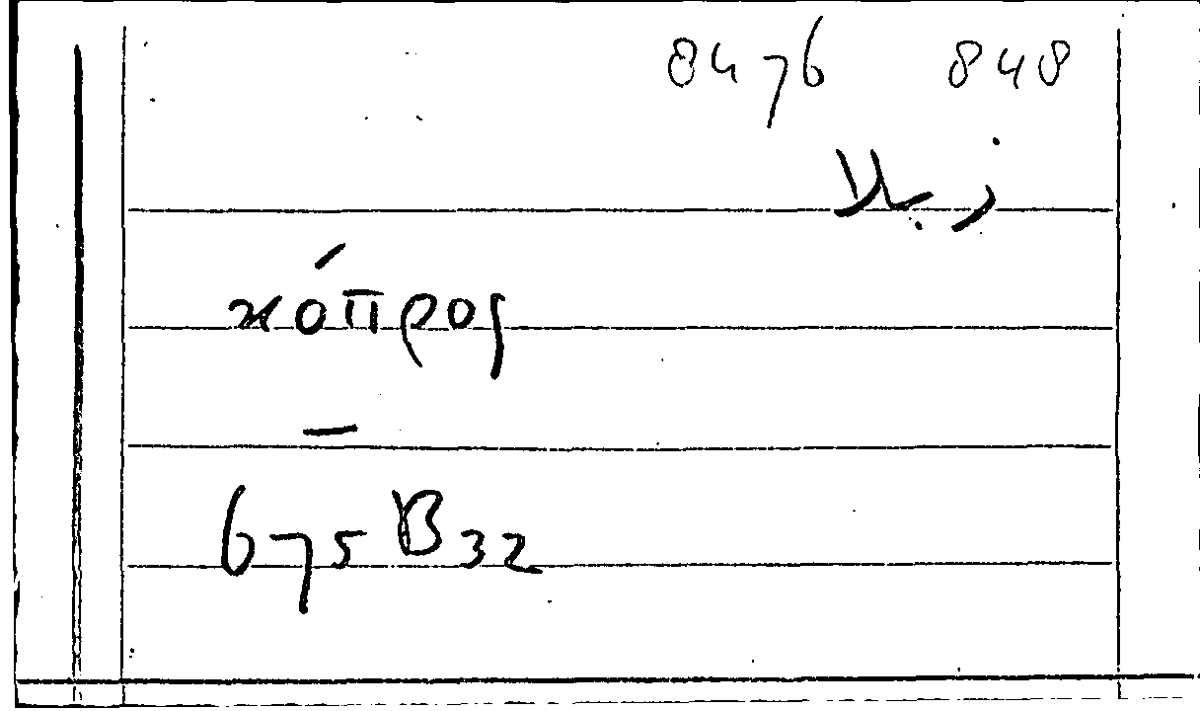 8476 848
زبلا
κόπρος
–
675 B 32